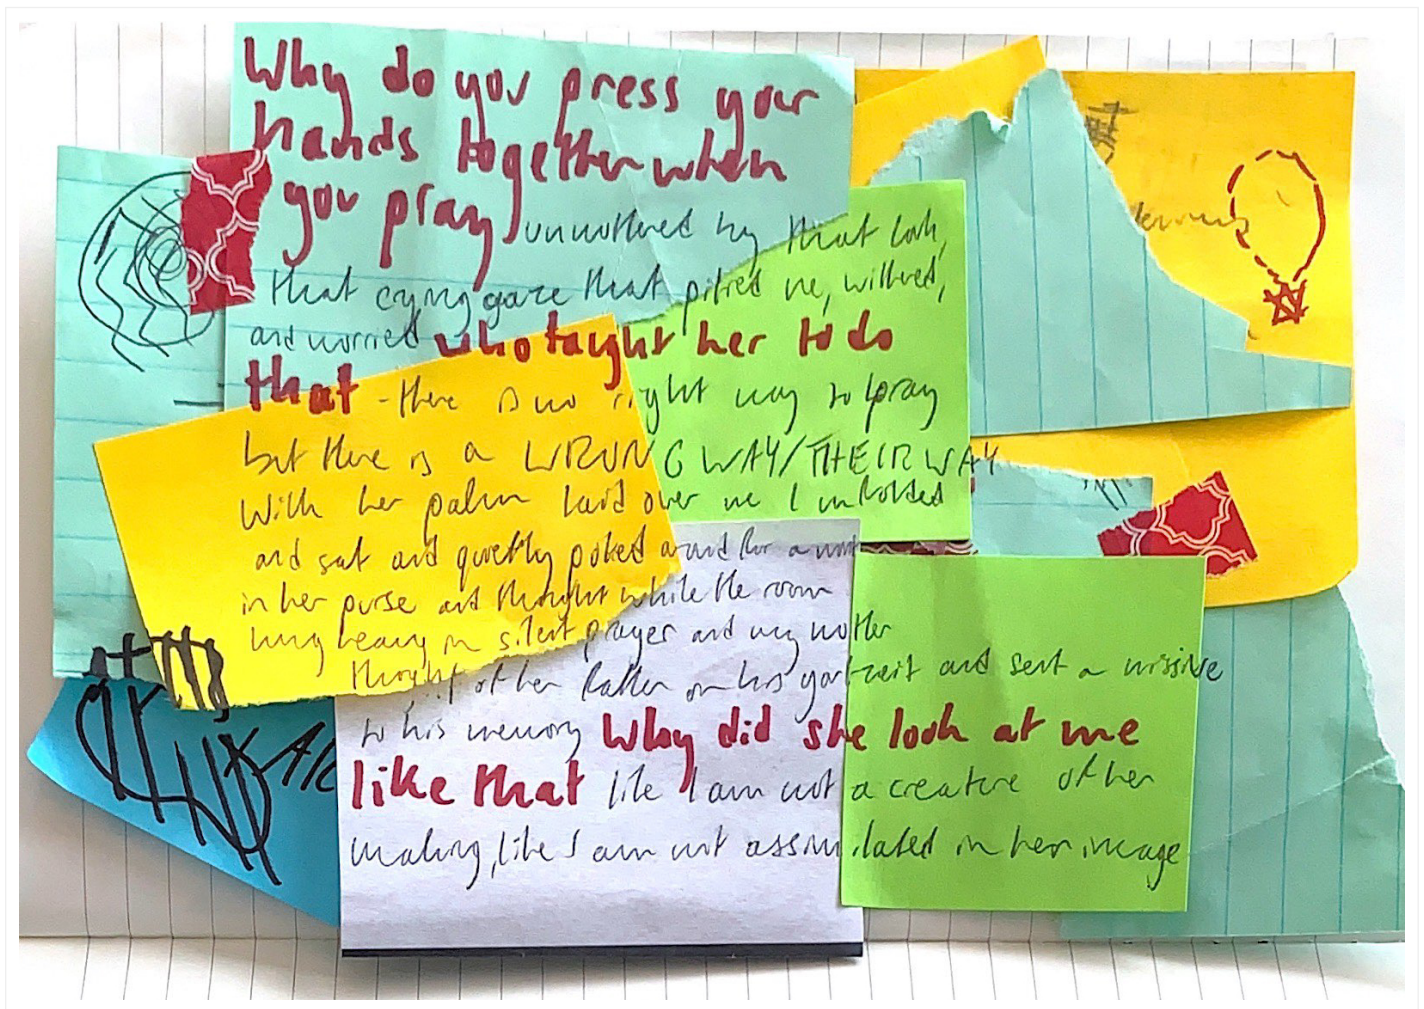 Why do you press your
hands together when
you pray unmothered by that look,
that crying gaze that pitied me, withered,
and worried who taught her to do
that - there is no right way to pray
but there is a WRONG WAY/THEIR WAY
With her palm laid over me I unfolded
and sat and quietly poked around for a mint
in her purse and thought while the room
hung heavy in silent prayer and my mother
thought of her father on his yortzeit and sent a missive
to his memory Why did she look at me
like that like I am not a creature of her
making, like I am not assimilated in her image